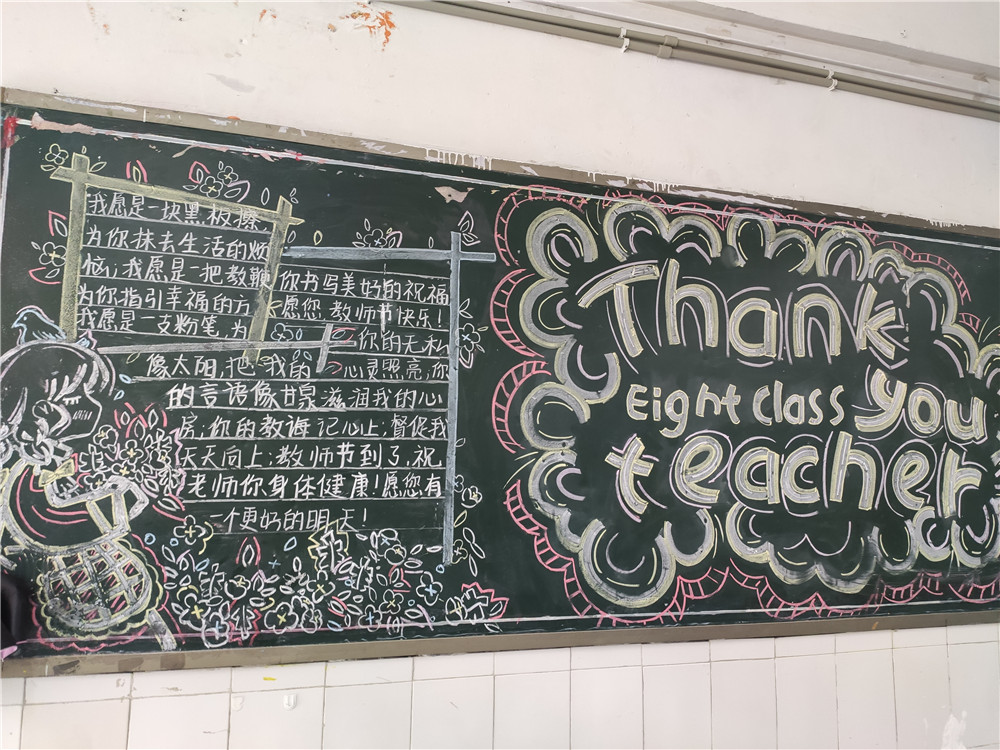 我愿是一块黑板擦,
为你抹去生活的烦
恼;我愿是一把教鞭
为你指引幸福的方
我愿是一支粉笔,为
你书写美好的祝福
愿您教师节快乐!
你的无私
像太阳,把我的心灵照亮,你
的言语像甘泉滋润我的心
房;你的教诲记心上;督促我
天天向上;教师节到了,祝
老师你身体健康!愿您有
一个更好的明天!
Thank
Eight class you
teacher